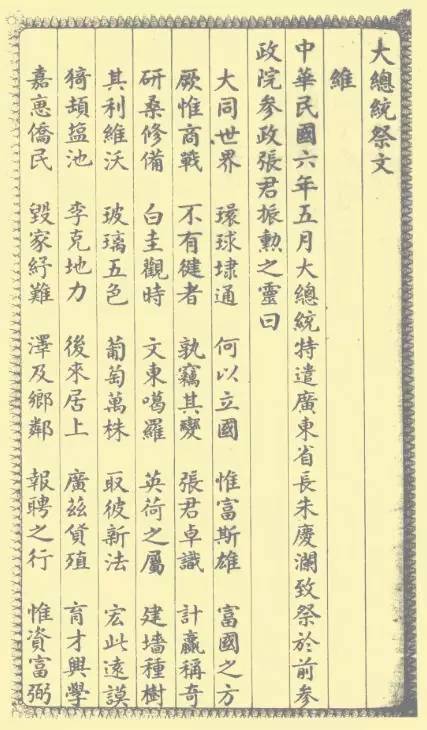 大總統祭文
維
中華民國六年五月大總統特遣廣東省長朱慶瀾致祭於前參
政院參政張君振勲之靈曰
大同世界 環球埭通 何以立國 惟富斯雄 富國之方
厥惟商戰 不有健者 孰竊其㚇 張君卓識 計贏稱奇
研桑修備 白圭觀時 文東噶羅 英荷之屬 建墻種樹
其利維沃 玻璃五色 葡萄萬株 取彼新法 宏此遠謨
猗頓盬池 李克地力 後來居上 廣茲貨殖 育才興學
嘉惠僑民 毀家紓難 澤及鄉鄰 報聘之行 惟資富弼